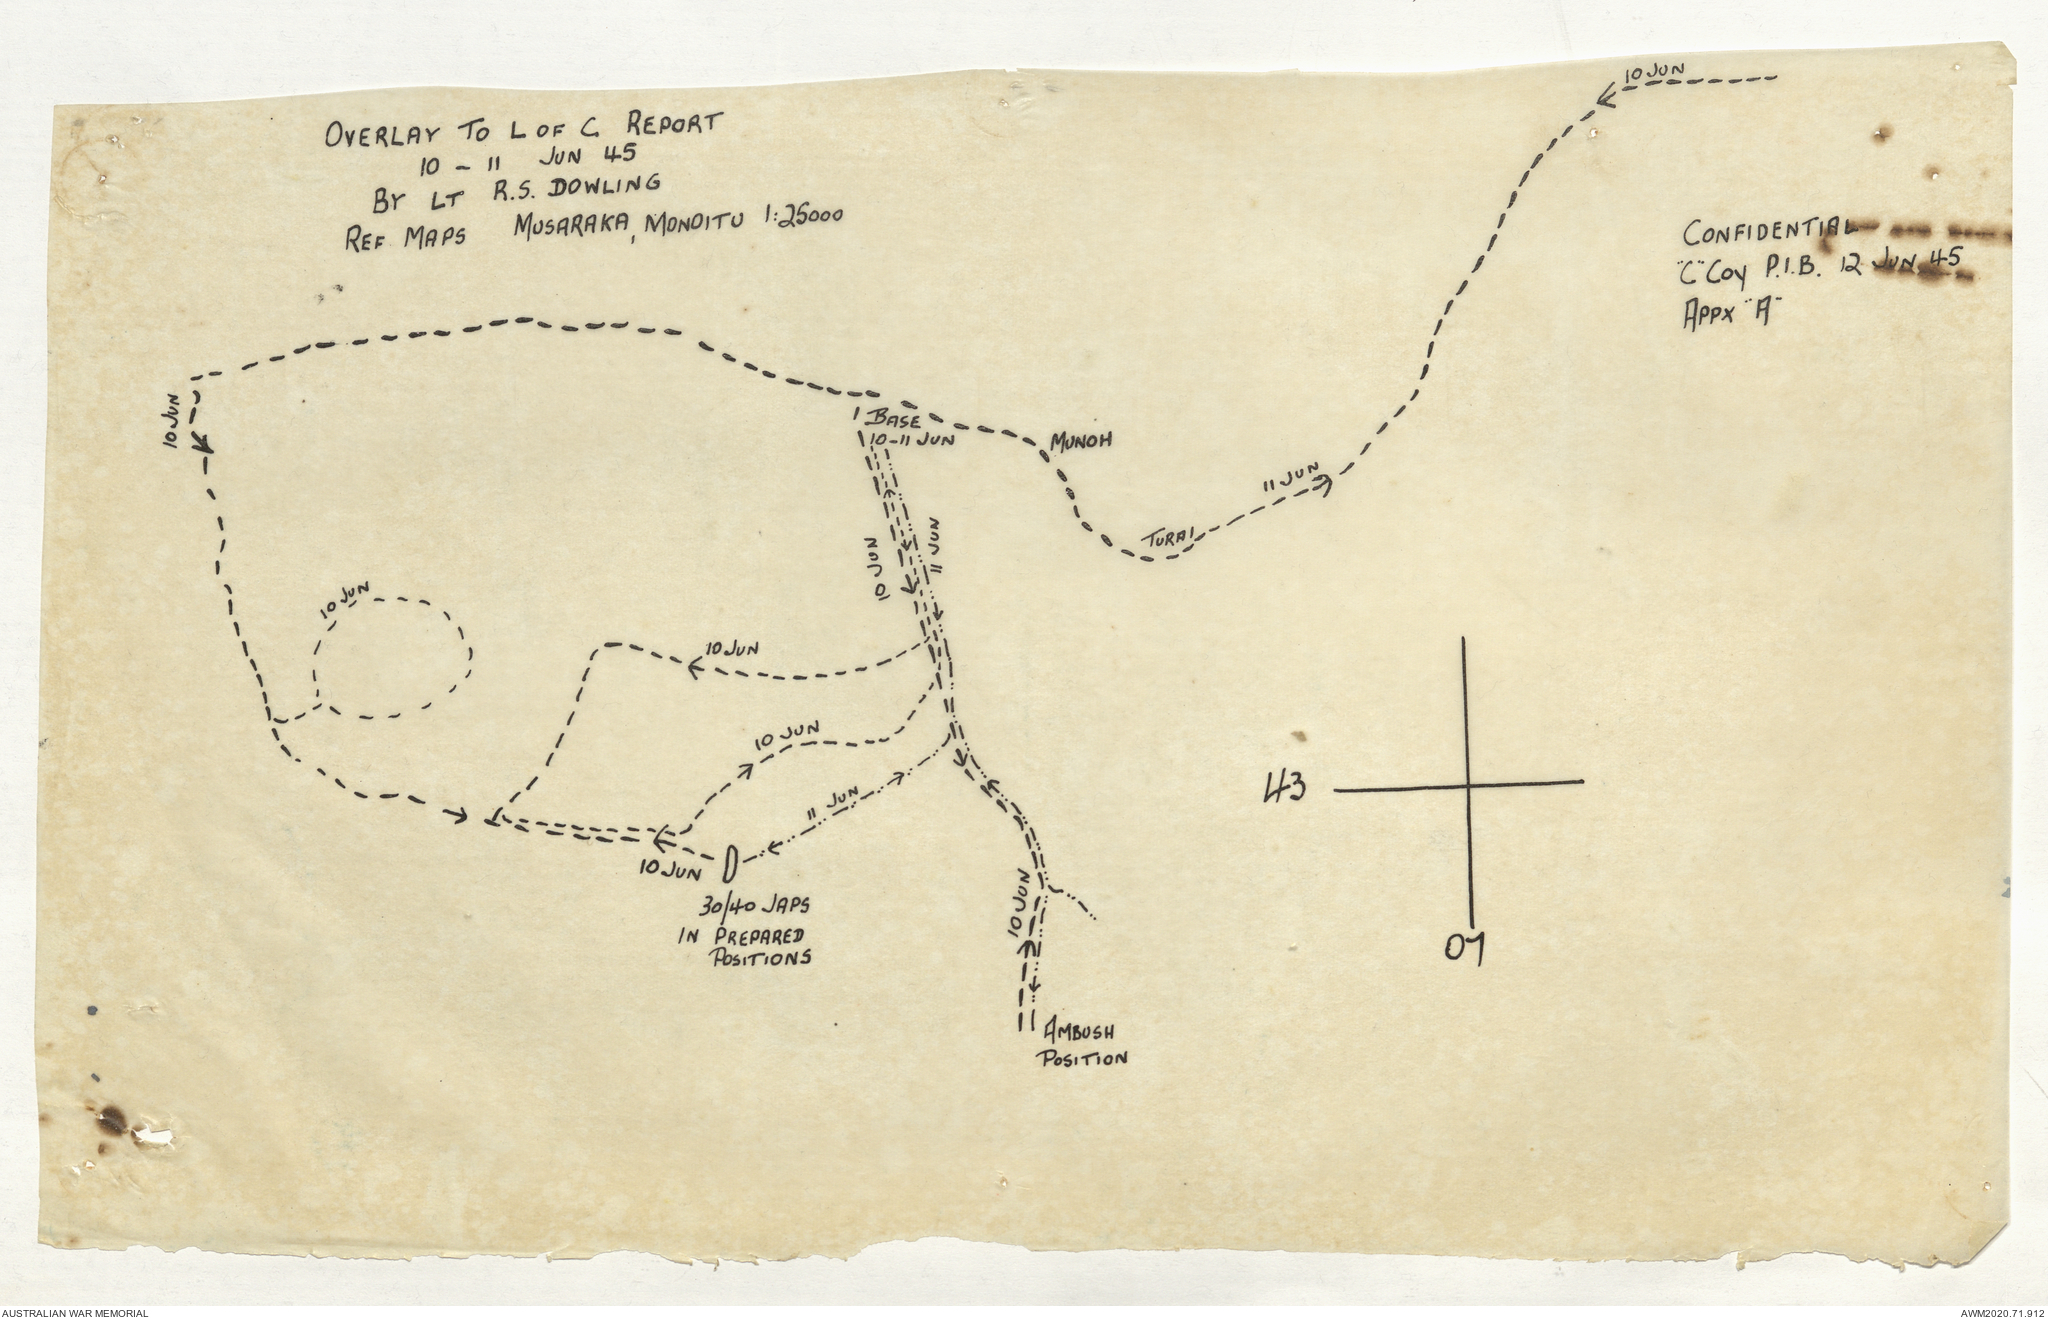 10 JUN
OVERLAY TO L OF C REPORT
10 - 11 JUN 45
BY LT R.S. DOWLING
REF MAPS MUSARAKA, MONOITU 1:25000
CONFIDENTIAL
"C" COY P.I.B. 12 JUN 45
APPX "A"
10 JUN
BASE
10-11 JUN
MUNOH
11 JUN
TURAI
10 JUN
11 JUN
10 JUN
10 JUN
10 JUN
11 JUN
10 JUN
30/40 JAPS
IN PREPARED
POSITIONS
10 JUN
AMBUSH
POSITION
43
07
AUSTRALIAN WAR MEMORIAL
AWM2020.71.912